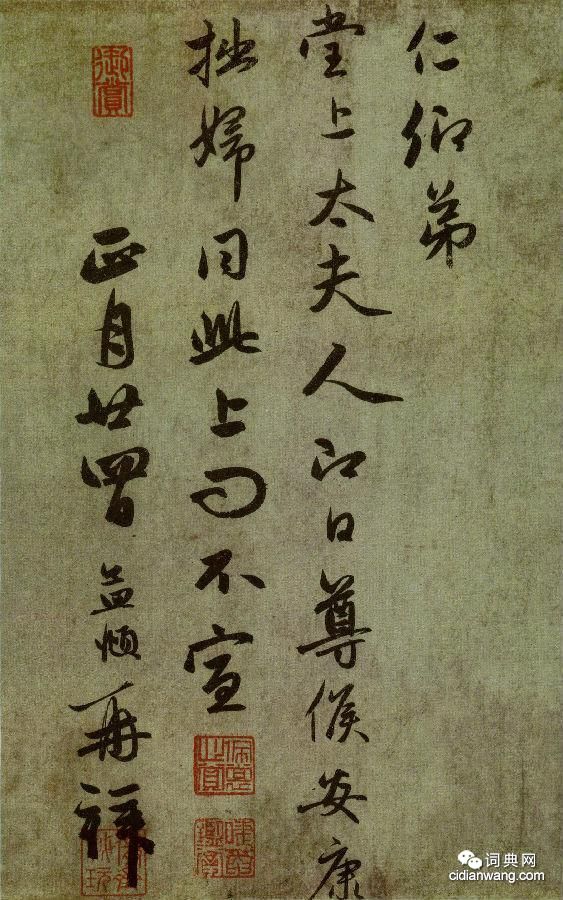 仁卿弟
堂上太夫人即日尊候安康
拙婦同此上問不宣
正月廿四日 孟頫再拜
御賞
词典网
cidianwang.com